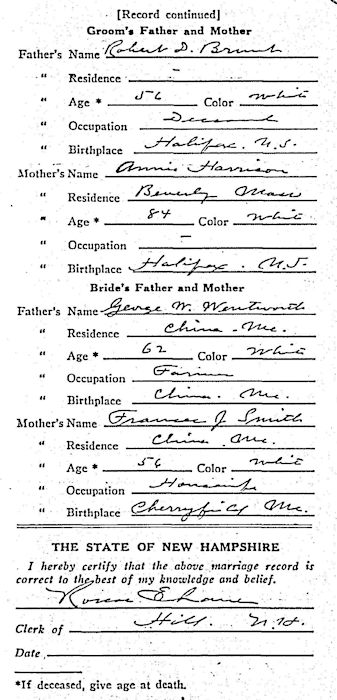 [Record continued]
Groom's Father and Mother
Father's Name Robert D. Brunt
" Residence -
" Age * 56 Color White
" Occupation Deceased
" Birthplace Halifax. N.S.
Mother's Name Annie Harrison
" Residence Beverly Mass
" Age * 84 Color White
" Occupation -
" Birthplace Halifax. N.S.
Bride's Father and Mother
Father's Name George W. Wentworth
" Residence China. Me.
" Age * 62 Color White
" Occupation Farmer
" Birthplace China. Me.
Mother's Name Frances J Smith
" Residence China. Me.
" Age * 56 Color White
" Occupation Housewife
" Birthplace Cherryfield Me.
THE STATE OF NEW HAMPSHIRE
I hereby certify that the above marriage record is
correct to the best of my knowledge and belief.
Roscoe E
Clerk of Hill. N.H.
Date
*If deceased, give age at death.